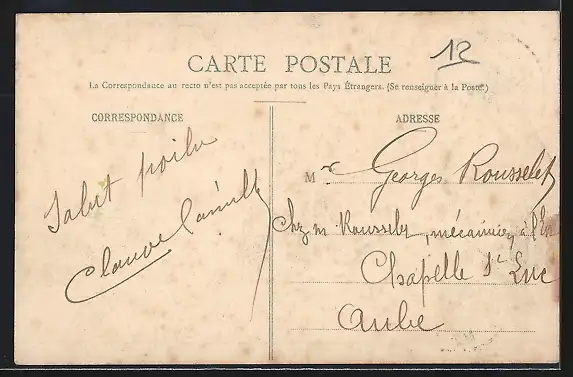 CARTE POSTALE
12
La Correspondance au recto n'est pas acceptée par tous les Pays Étrangers. (Se renseigner à la Poste.)
CORRESPONDANCE
ADRESSE
Salut poilu
Claude Camille
Mr Georges Rousselet
Chez m Rousselet, mécanicien, à l'
Chapelle St Luc
Aube